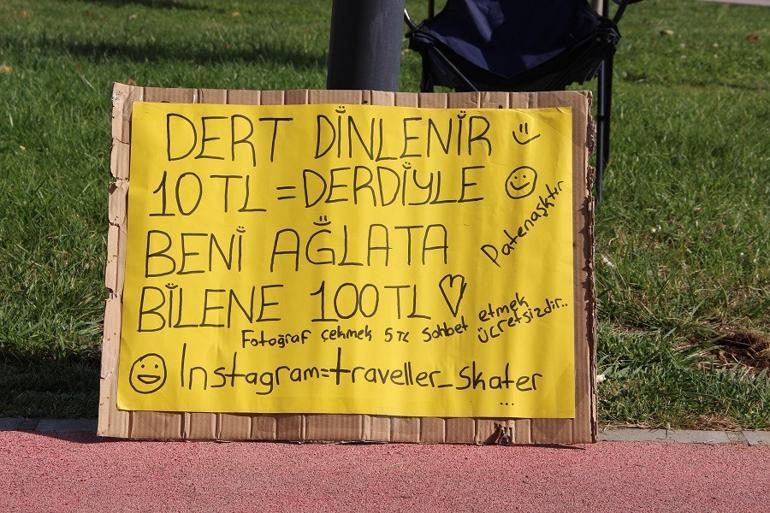 DERT DİNLENİR
10 TL = DERDİYLE
Patenaşktır
BENİ AĞLATA
BİLENE 100TL
Fotoğraf çekmek 5 TL Sohbet etmek
ücretsizdir..
Instagram=traveller_skater
...